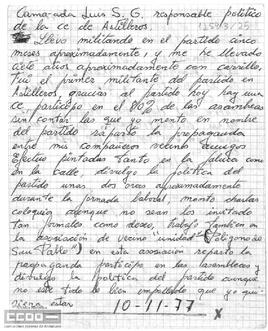 Camarada Luis S. G. responsable político
de la ce de Artilleros.
Llevo militando en el partido cinco
meses aproximadamente, y me he llevado
siete años aproximadamente con carrillo,
Fui el primer militante del partido en
Artilleros, gracias al partido hoy hay una
ce, participo en el 80% de las asambleas
sin contar las que yo monto en nombre
del partido reparto la propaganda
entre mis compañeros
efectuo pintadas tanto en la fabrica como
en la calle, divulgo la política del
partido unas dos oras aproximadamente
durante la jornada laboral, monto charlas
coloquio aunque no sean los invitado
tan formales como deseo, trabajo tambien en
la asociación de vecino "unidad" (Poligono de
San Pablo) en esta asociación reparto la
propaganda participo en las asambleas y
divulgo la política del partido aunque
no este todo lo bien empollado que yo qui-
siera estar
10-11-77 X
ccoo